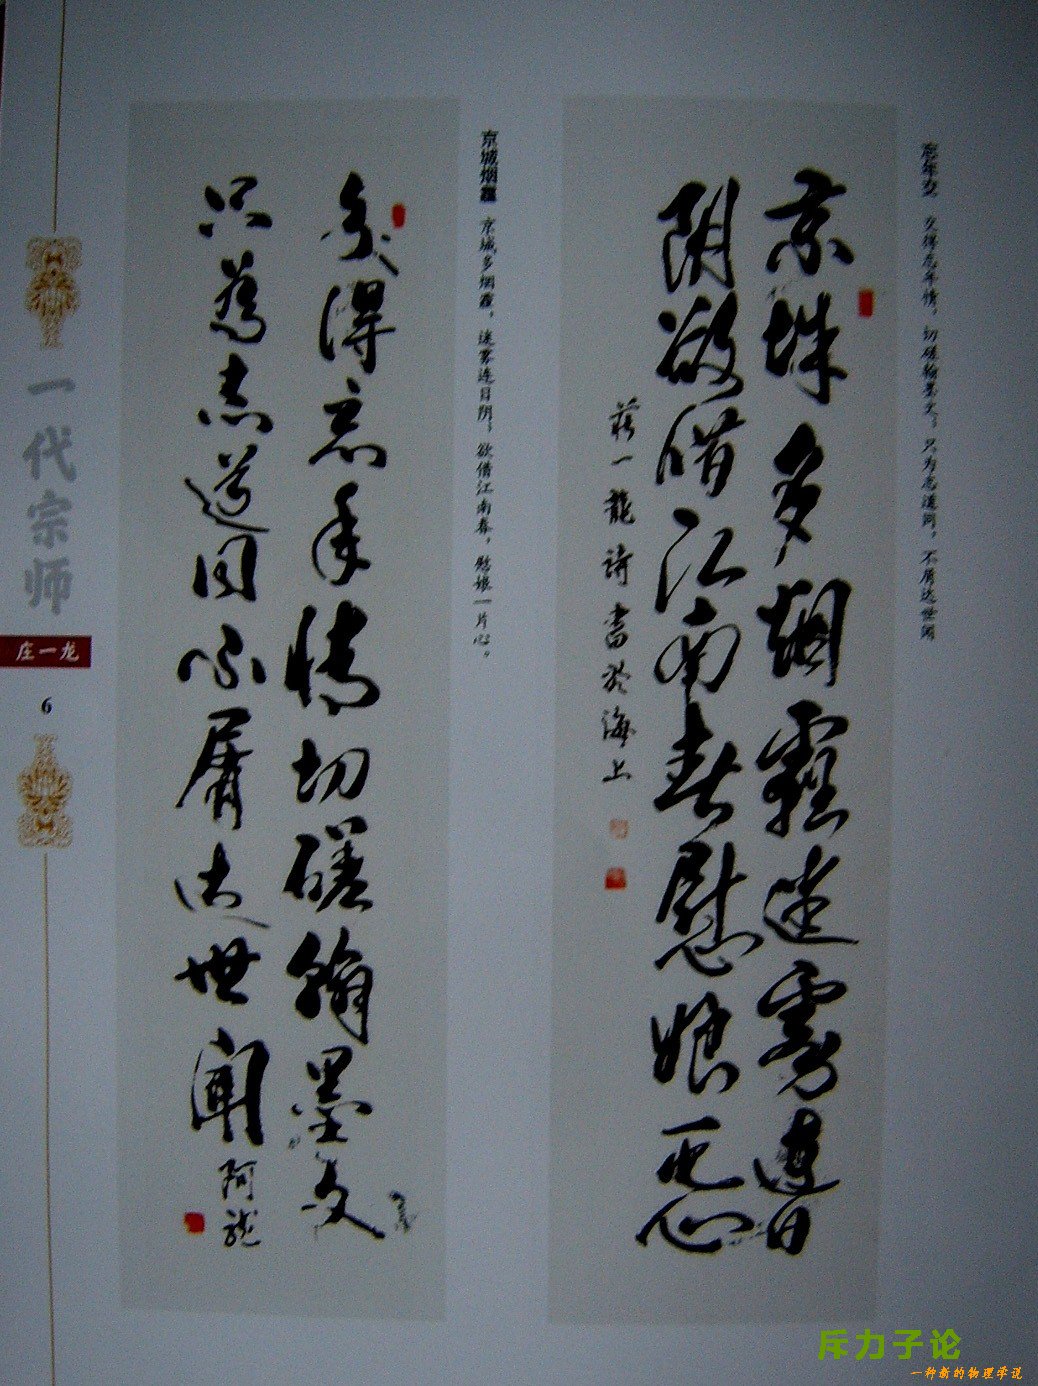 忘年交 交得忘年情，切磋翰墨文；只为志道同，不屑达世闻
京城多烟霾迷雾連日
阴欲借江南春慰娘一片心
莊一龍詩書於海上
京城烟霾 京城多烟霾，迷雾连日阴，欲借江南春，慰娘一片心。
交得忘年情切磋翰墨文
只為志道同不屑达世闻
阿龍
一代宗师
庄一龙
6
斥力子论
一种新的物理学说